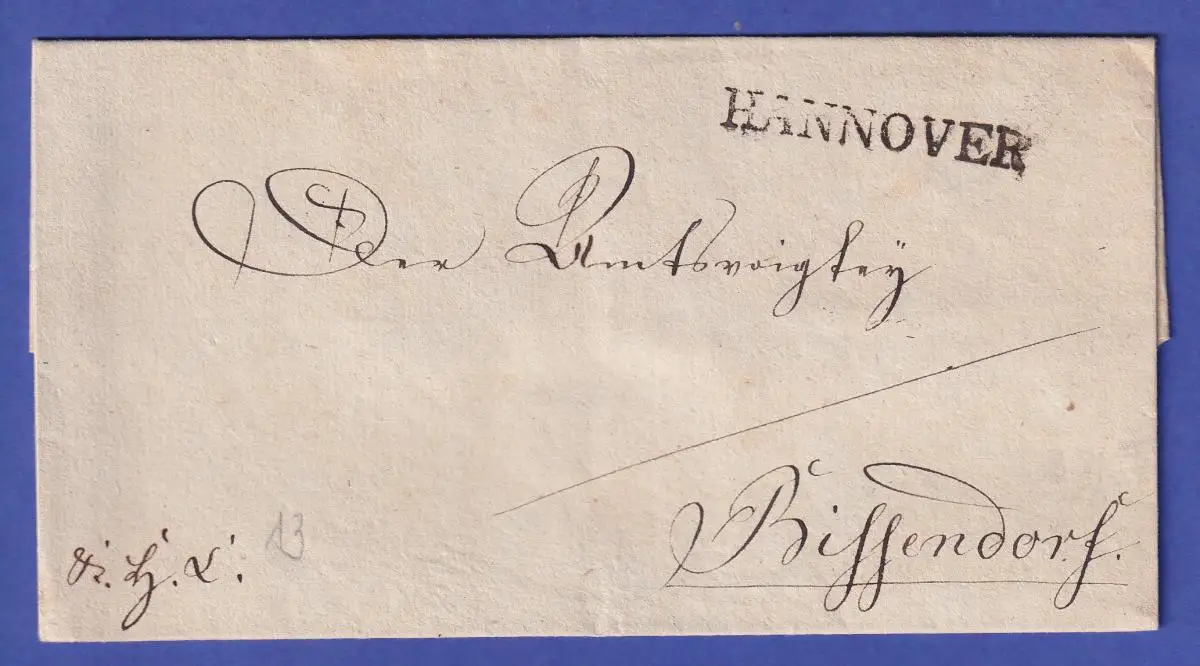 HANNOVER
Der Amtsvoigtey
Bissendorf.
13